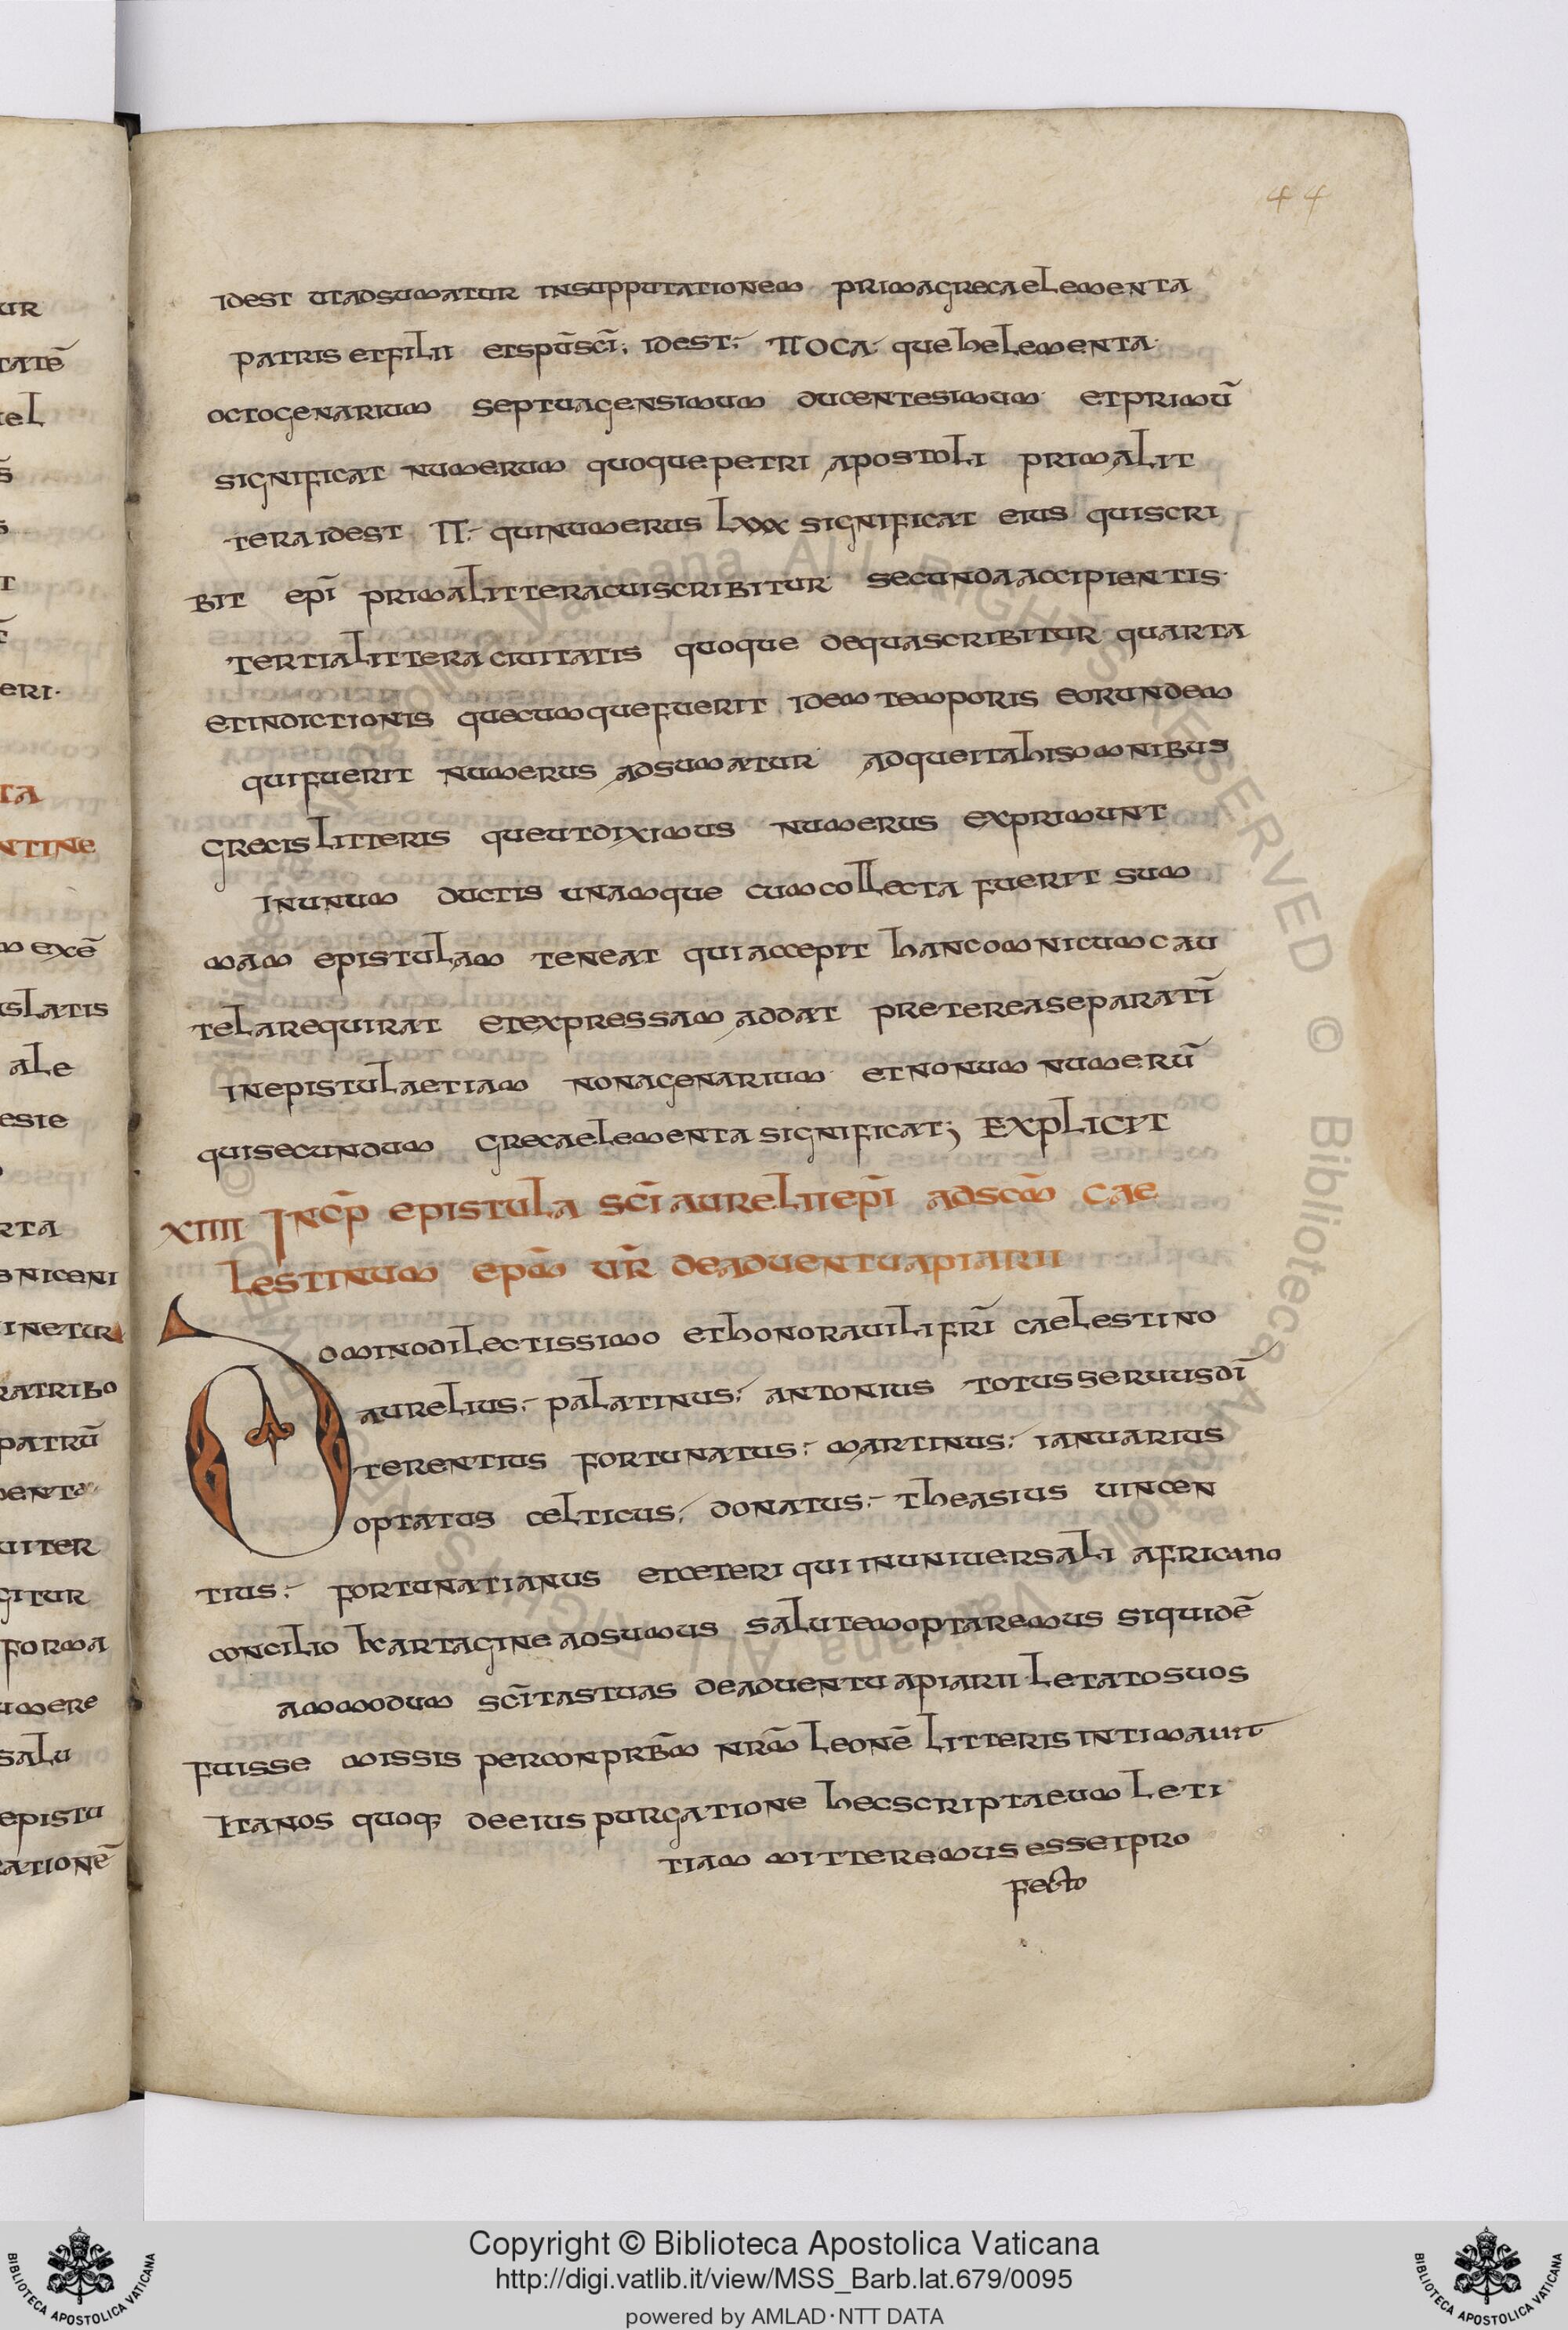 44
idest utadsumatur insupputationem primagrecaelementa
patris etfilii etspūscī; idest; ΠΟCΑ quehelementa
octogenarium septuagensimum ducentesimum etprimū
significat numerum quoquepetri apostoli primalit
teraidest Π; quinumerus lxxx significat eius quiscri
bit epī primalitteracuiscribitur secundaaccipientis
tertialittera ciuitatis quoque dequascribitur quarta
etindictionis quecumquefuerit idem temporis eorundem
quifuerit numerus adsumatur adqueitahisomnibus
grecislitteris queutdiximus numerus exprimunt
inunum ductis unamque cumcollecta fuerit sum
mam epistulam teneat quiaccepit hancomnicumcau
telarequirat etexpressam addat pretereaseparatī
inepistulaetiam nonagenarium etnonum numerū
quisecundum grecaelementasignificat; EXPLICIT
XIIII INCP̄ epistula scī aureliiepī adscm̄ cae
lestinum epm̄ ur̄ deaduentuapiarii
Dominodilectissimo ethonorauilifrī caelestino
aurelius; palatinus; antonius totusseruusdī
terentius fortunatus; martinus; ianuarius
optatus celticus; donatus; theasius uincen
tius; fortunatianus etceteri quiinuniuersali africano
concilio kartagine adsumus salutemoptaremus siquidē
ammodum scītastuas deaduentu apiarii letatosuos
fuisse missis perconprb̄m nrm̄ leonē litterisintimauit
itanos quoq; deeiuspurgatione hecscriptaeum leti
tiam mitteremusessetpro
fecto
ur
tatē
tel
s̄
s
eri·
ta
ntine
m exē
islatis
ale
esie
rta
s niceni
inetur
ratribo
patrū
denta
uiter
gitur
forma
umere
salu
epistu
rationē
© Biblioteca Apostolica Vaticana ALL RIGHTS RESERVED
© Biblioteca Apostolica Vaticana ALL RIGHTS RESERVED
Copyright © Biblioteca Apostolica Vaticana
http://digi.vatlib.it/view/MSS_Barb.lat.679/0095
powered by AMLAD·NTT DATA
BIBLIOTECA APOSTOLICA VATICANA
BIBLIOTECA APOSTOLICA VATICANA